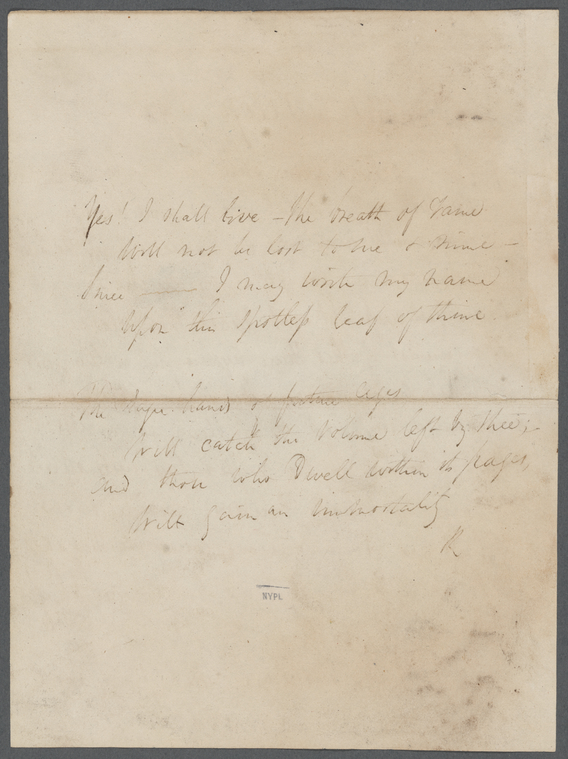 Yes! I shall live – the breath of Fame
Will not be lost to me & mine –
Since —— I may write my name
Upon this spotless leaf of thine.
The hands of future ages
Will catch the volume left by thee; –
and those who Dwell within its pages,
Will gain an immortality
R
NYPL